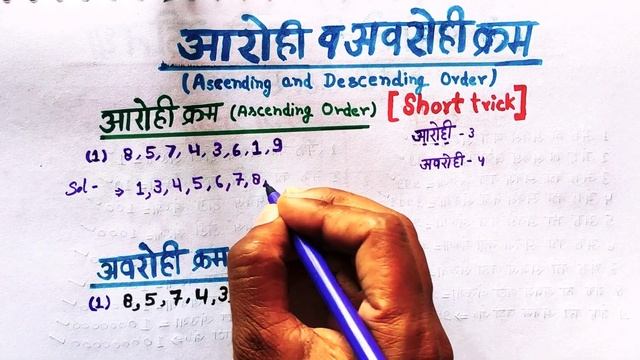 आरोही व अवरोही क्रम
(Ascending and Descending Order)
आरोही क्रम (Ascending Order) [Short trick]
आरोही - 3
अवरोही - 4
(1) 8,5,7,4,3,6,1,9
Sol - ⇒ 1,3,4,5,6,7,8,
अवरोही क्रम
(1) 8,5,7,4,3